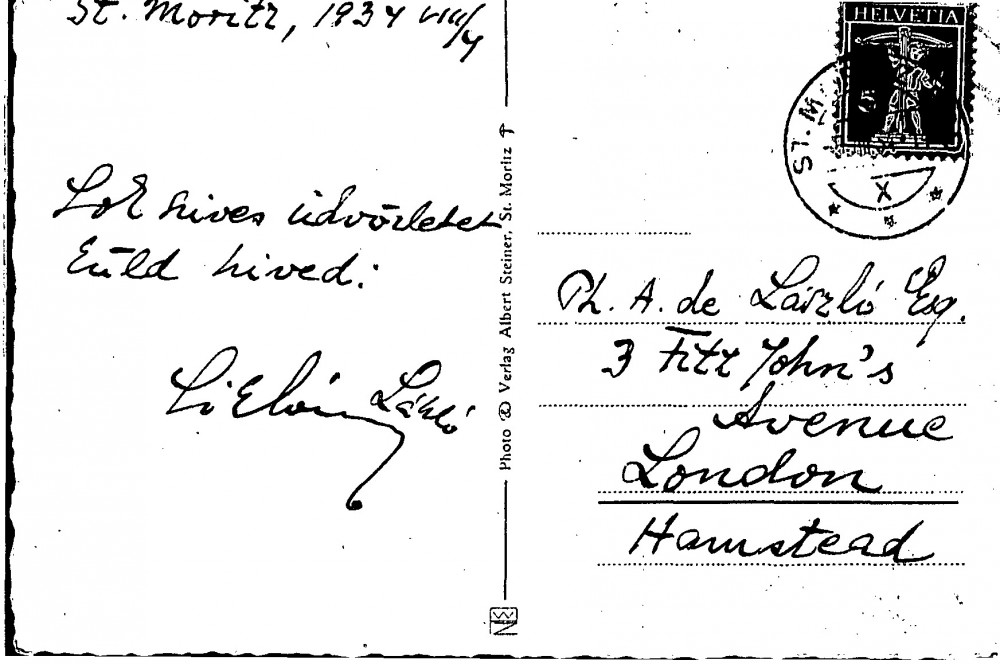 St. Moritz, 1934 VIII/4
Sok szives üdvözletet
küld hived:
László
Photo Verlag Albert Steiner, St. Moritz
HELVETIA
5
ST. M
X
Ph. A. de László Esq.
3 Fitz John's
Avenue
London
Hamstead